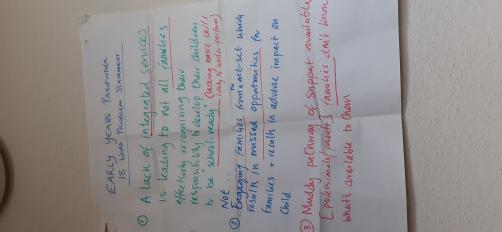 EARLY YEARS PATHFINDER
18 WORD PROBLEM STATEMENT
① A lack of integrated services
is leading to not all families
effectively recognising their
responsibility to develop their children
to be "school-ready" (lacking basic skills
likely to under-perform)
Not...
② Engaging families from outset which
results in missed opportunities for
families + results in adverse impact on
child.
③ Muddy pathway of support available
[professionals/parents] families don't know
what's available to them